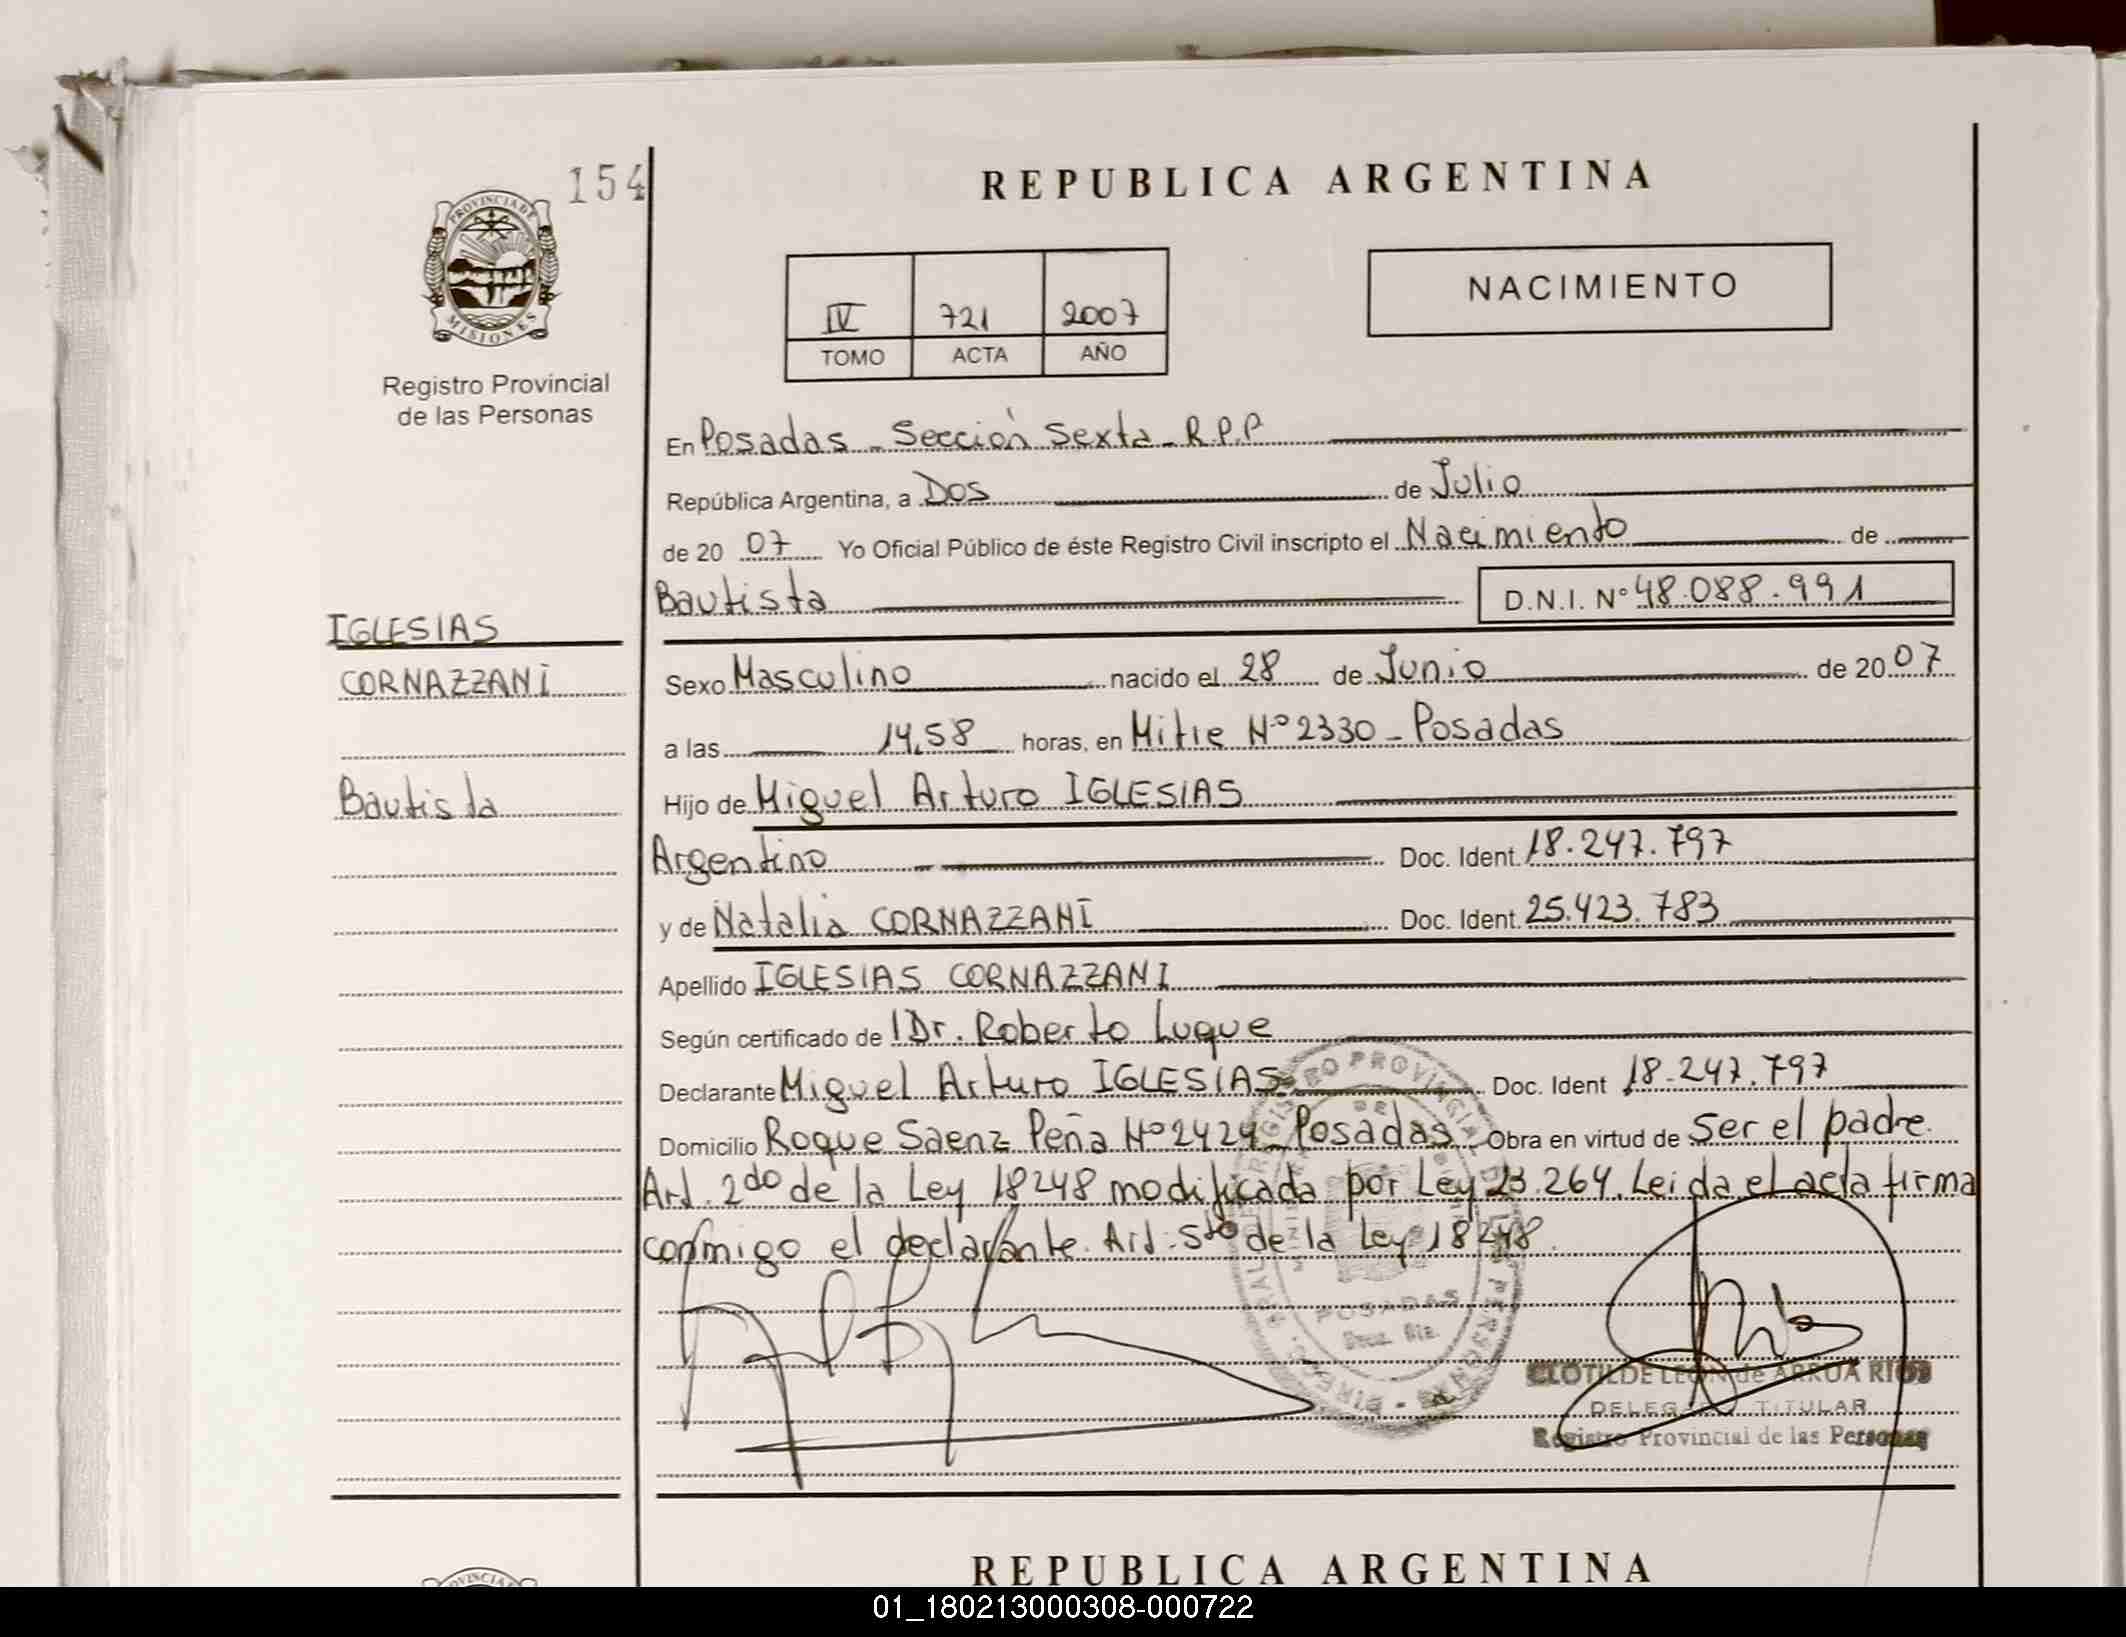 154
REPUBLICA ARGENTINA
PROVINCIA DE
MISIONES
Registro Provincial
de las Personas
IV 721 2007
TOMO ACTA AÑO
NACIMIENTO
En Posadas - Sección Sexta - R.P.P
República Argentina, a Dos de Julio
de 20 07 Yo Oficial Público de éste Registro Civil inscripto el Nacimiento de
Bautista D.N.I. Nº 48.088.991
IGLESIAS
CORNAZZANI
Bautista
Sexo Masculino nacido el 28 de Junio de 20 07
a las 14,58 horas, en Mitre Nº 2330 - Posadas
Hijo de Miguel Arturo IGLESIAS
Argentino Doc. Ident. 18.247.797
y de Natalia CORNAZZANI Doc. Ident. 25.423.783
Apellido IGLESIAS CORNAZZANI
Según certificado de Dr. Roberto Luque
Declarante Miguel Arturo IGLESIAS Doc. Ident 18.247.797
Domicilio Roque Saenz Peña Nº 2424 - Posadas Obra en virtud de Ser el padre.
Art. 2do de la Ley 18248 modificada por Ley 23.264. Leida el acta firma
conmigo el declarante. Art. 5to de la Ley 18248.
POSADAS
CLOTILDE LEON de ARRUA RIOS
DELEGADO TITULAR
Registro Provincial de las Personas
REPUBLICA ARGENTINA
01_180213000308-000722